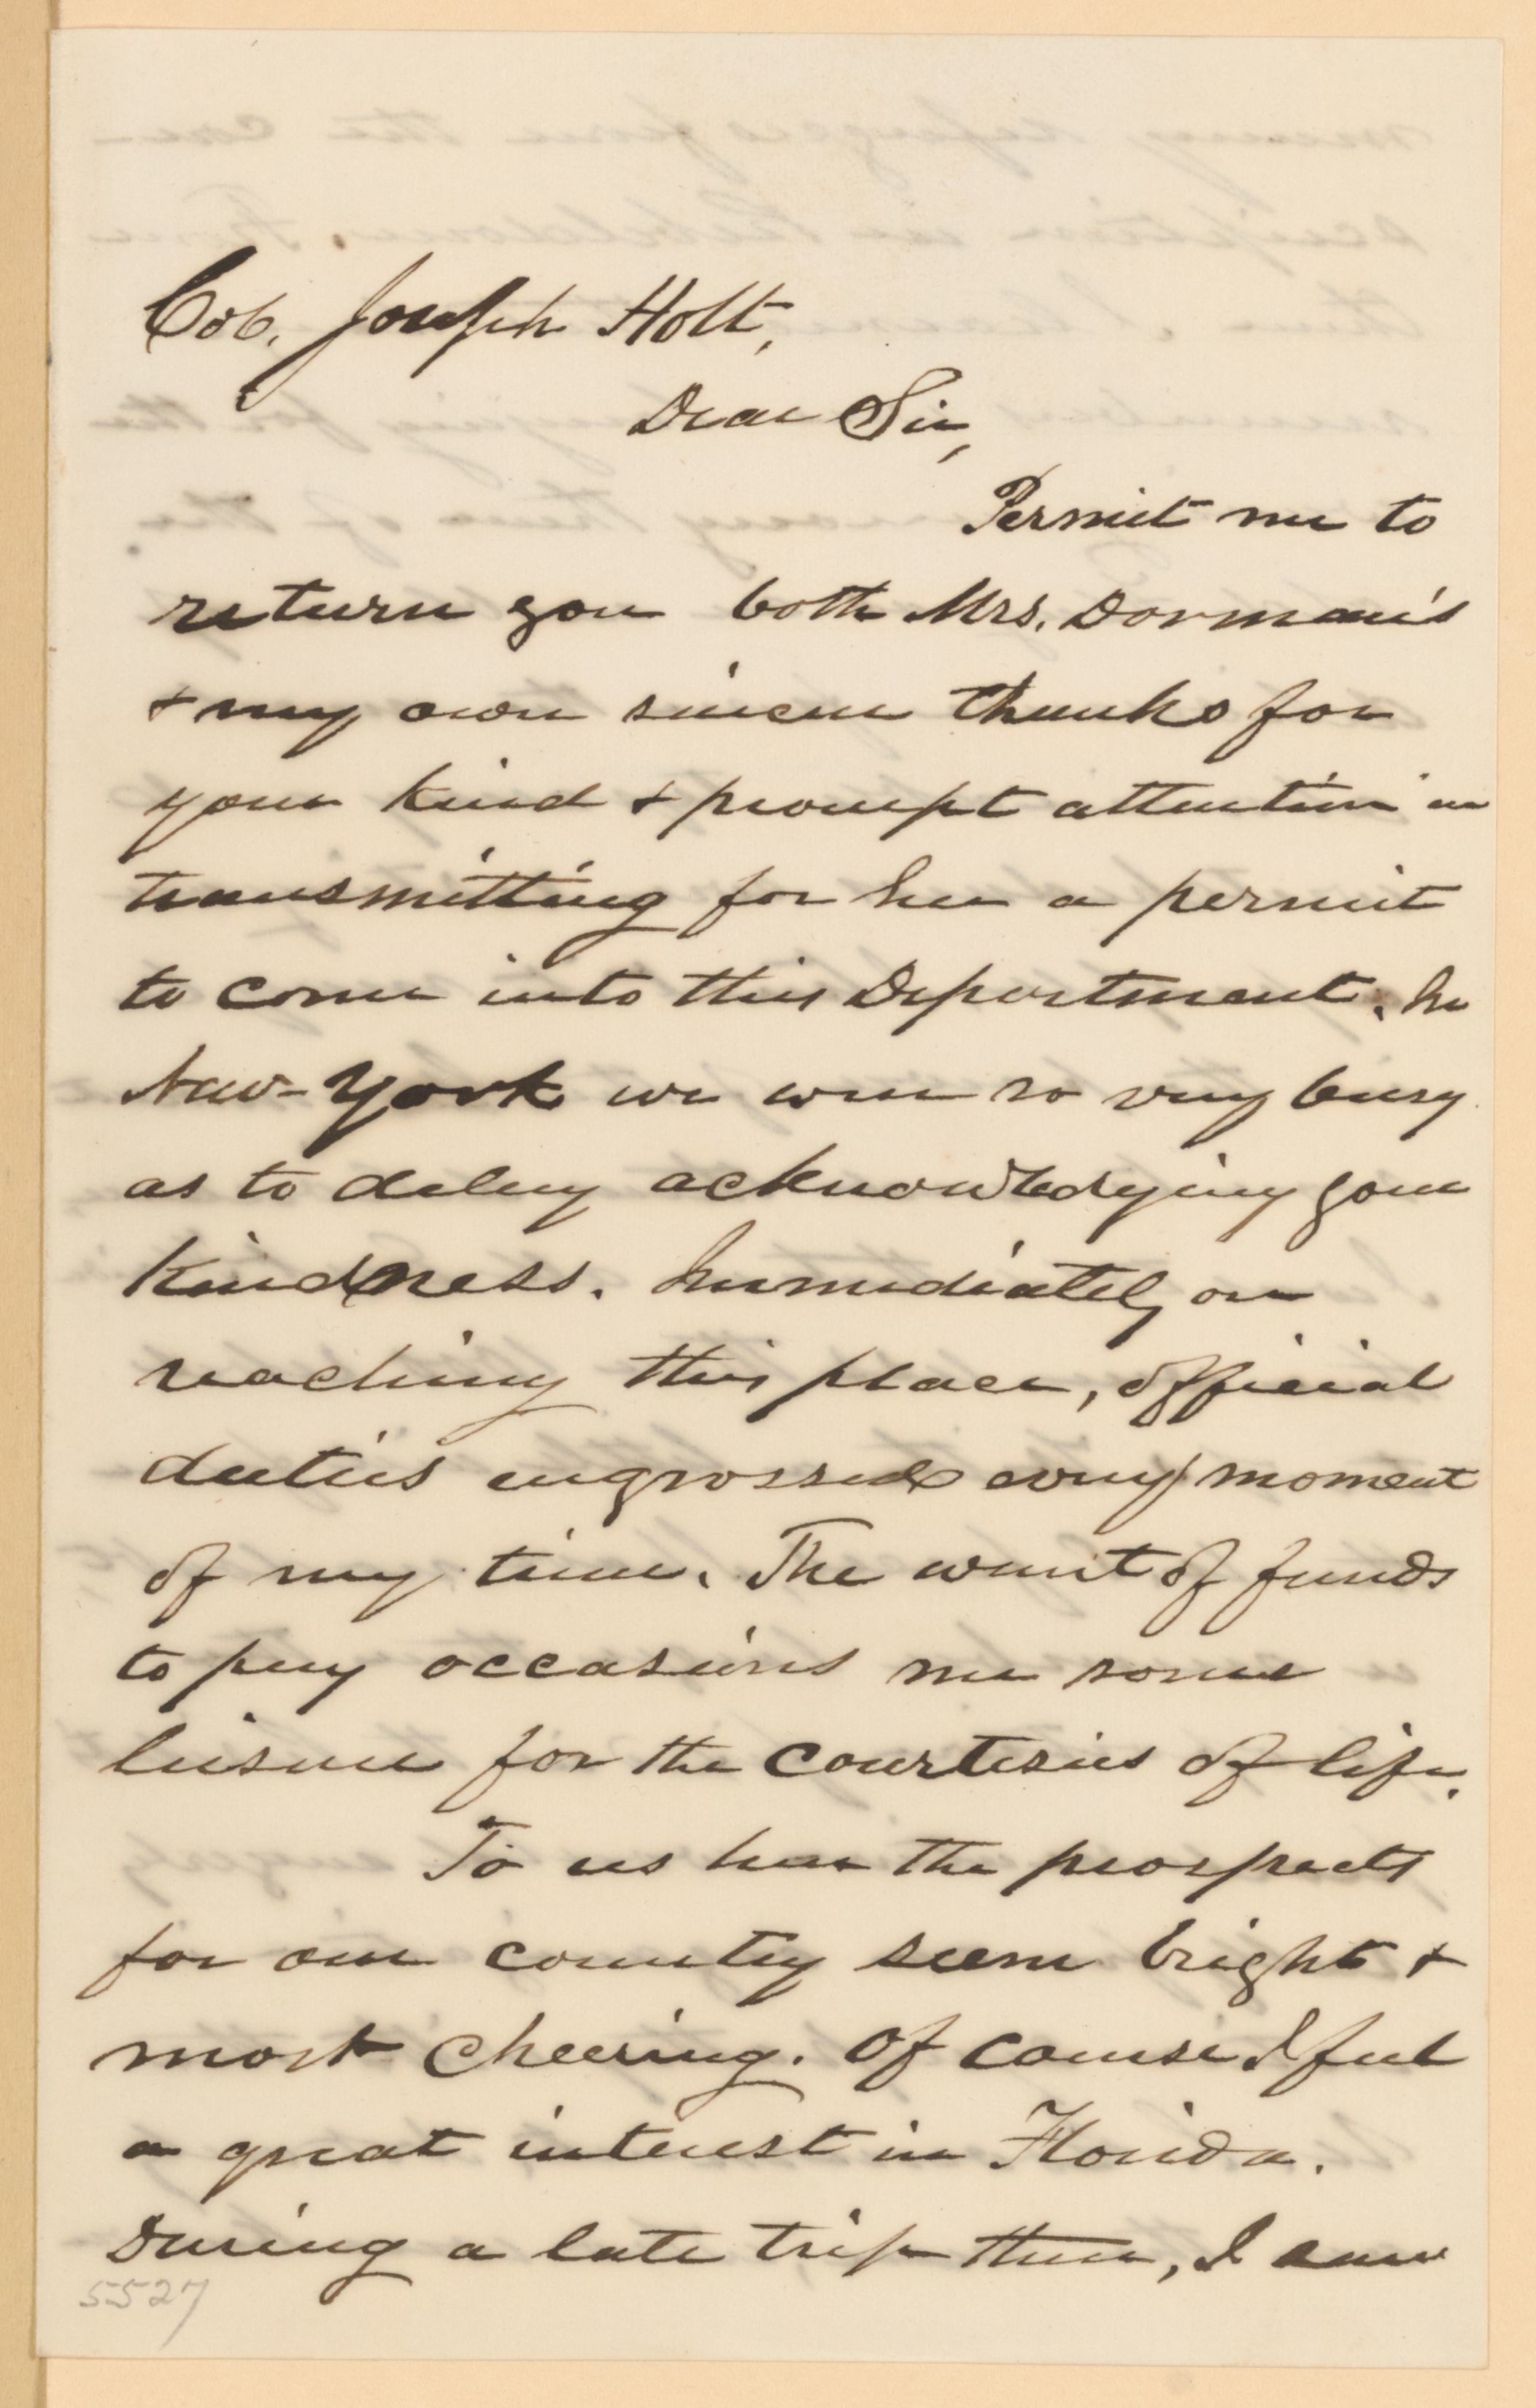 Col. Joseph Holt,
Dear Sir,
Permit me to
return you both Mrs. Dorman's
& my own sincere thanks for
your kind & prompt attention in
transmitting for her a permit
to come into this Department. In
New-York we were so very busy
as to delay acknowledging your
kindness. Immediately on
reaching this place, official
duties engrossed every moment
of my time. The want of funds
to pay occasions me some
leisure for the courtesies of life.
To us here the prospects
for our country seem bright &
most cheering. Of course I feel
a great interest in Florida.
During a late trip there, I saw
5527